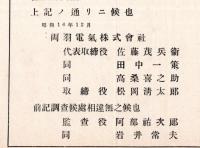 上記ノ通リニ候也
昭和14年12月
両羽電氣株式會社
代表取締役 佐藤茂兵衞
同 田中一策
同 高桑喜之助
取締役 松岡清太郎
前記調査候處相違無之候也
監査役 阿部祐次郎
同 岩井常夫